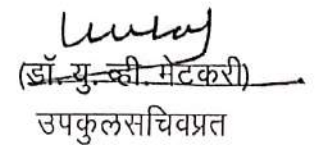 (डॉ. यु. व्ही. मेटकरी)
उपकुलसचिवप्रत